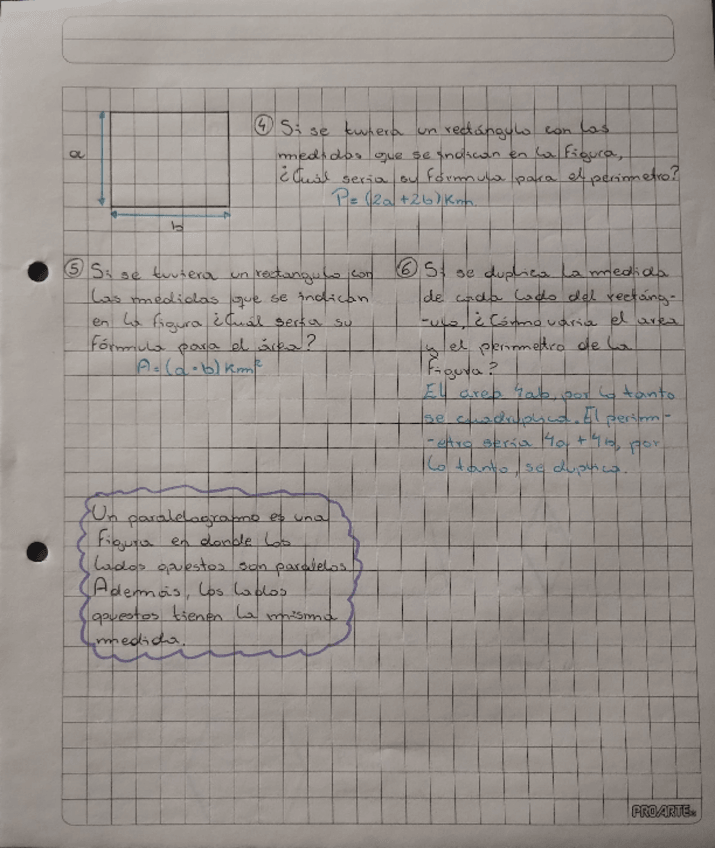 a
b
④ Si se tuviera un rectángulo con las
medidas que se indican en la figura,
¿Cuál sería su fórmula para el perímetro?
P= (2a +2b) Km
⑤ Si se tuviera un rectangulo con
las medidas que se indican
en la figura ¿Cuál sería su
fórmula para el área?
A=(a·b) Km²
⑥ Si se duplica la medida
de cada lado del rectáng-
-ulo, ¿Cómo varía el area
y el perímetro de la
figura?
El area 4ab, por lo tanto
se cuadruplica. El perím-
-etro sería 4a + 4b, por
lo tanto, se duplica.
Un paralelogramo es una
figura en donde los
lados opuestos son paralelos
Además, los lados
opuestos tienen la misma
medida.
PROARTE